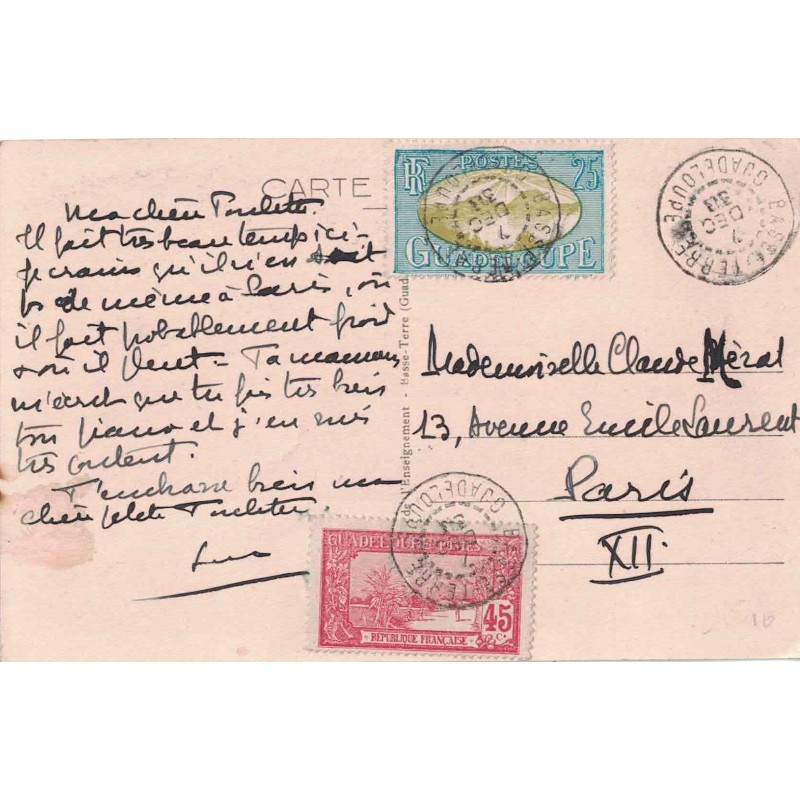 CARTE
Ma chère
Il fait très beau temps ici -
Je crains qu'il n'en soit
pas de même à Paris, où
il fait probablement froid
& où il pleut - Ta maman
m'écrit que tu fais très bien
ton piano et j'en suis
très content.
T'embrasse bien ma
chère petite
Luc
l'Enseignement - Basse-Terre (Guad
RF POSTES 25
GUADELOUPE
BASSE-TERRE
7 DEC 30
GUADELOUPE
BASSE-TERRE
7 DEC 30
GUADELOUPE
Mademoiselle Claude Mérat
13, Avenue Emile Laurent
Paris
XII.
GUADELOUPE POSTES
45 c.
RÉPUBLIQUE FRANÇAISE
BASSE-TERRE
7 DEC 30
GUADELOUPE